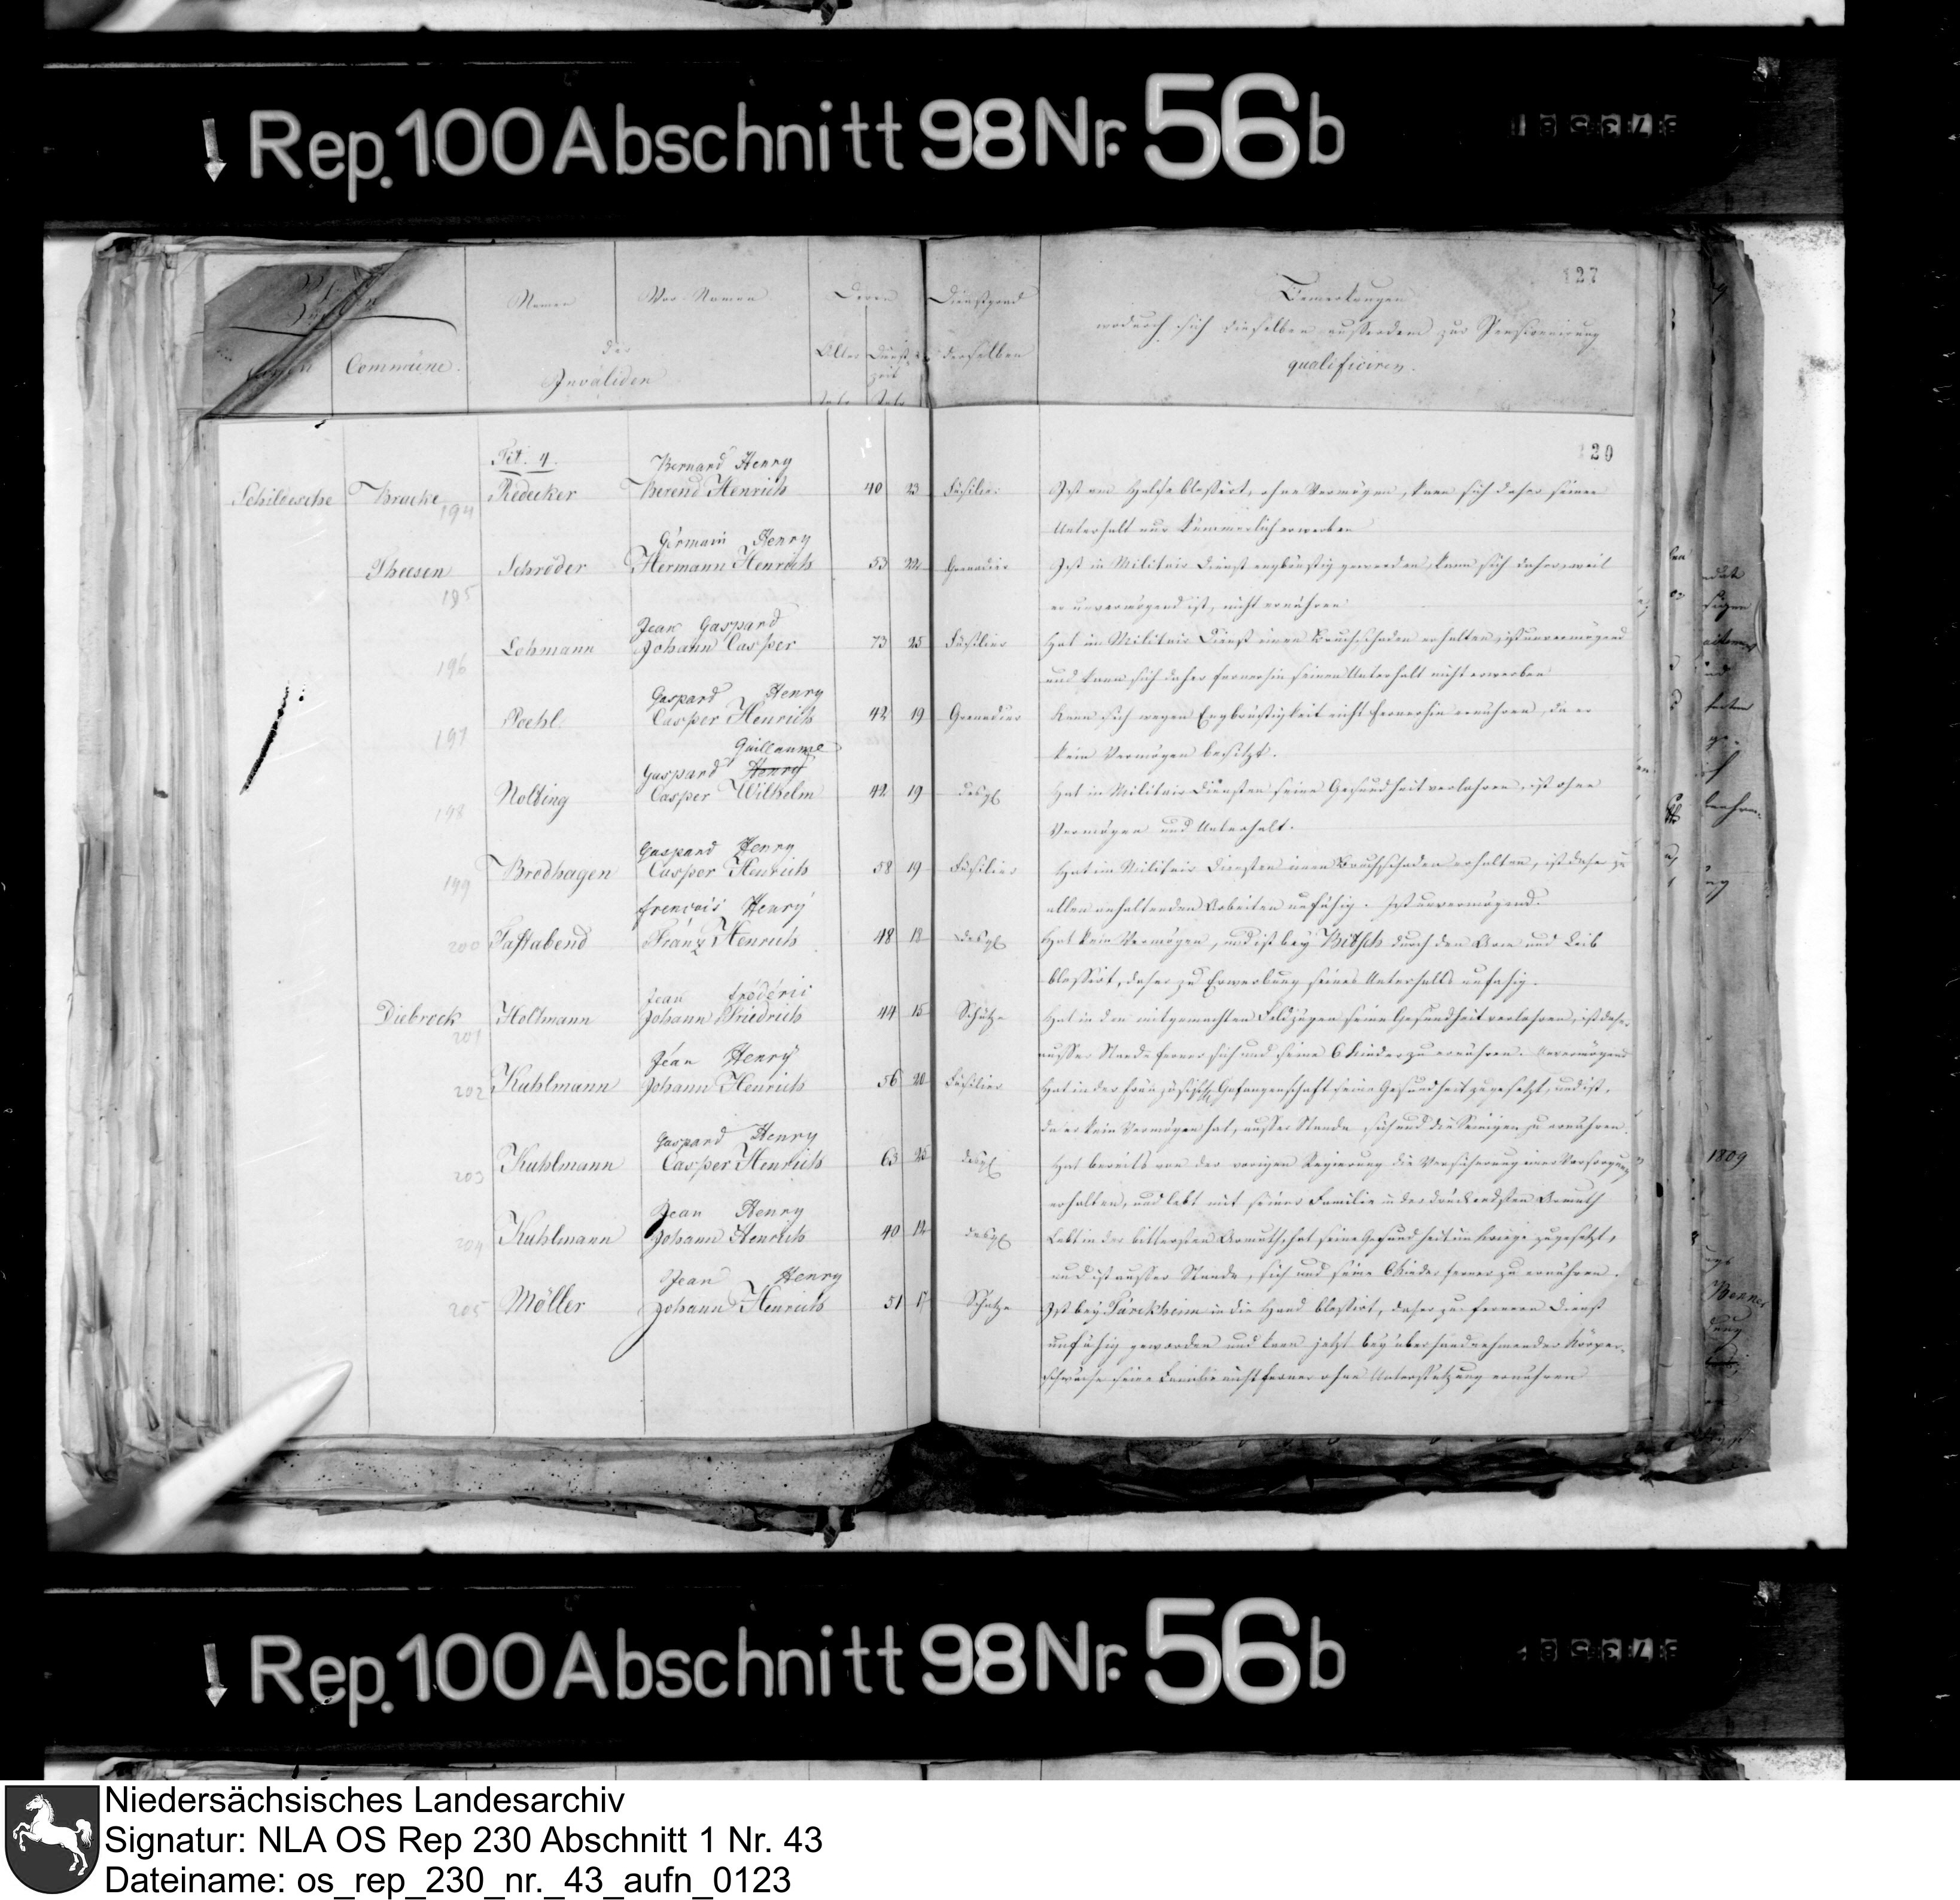 Rep. 100 Abschnitt 98 Nr. 56b
127
Namen
Vor-Namen
Deren
Dienstgrad
Bemerkungen
wodurch sich dieselben ausserdem zur Pensionirung
Commüne.
der
Invaliden
Alter
Dienst
zeit
derselben
qualificiren.
120
Tit. 4.
Bernard Henry
Schildesche Bracke 194 Redecker Berend Henrich 40 23 Füsilier Ist am Halse blessirt, ohne Vermögen, kann sich daher seinen
Unterhalt nur kümmerlich erwerben
Germain Henry
Theesen Schröder Hermann Henrich 53 22 Grenadier Ist in Militair Dienst engbrüstig geworden, kann sich daher, weil
195 er unvermögend ist, nicht ernähren
Jean Gaspard
196 Lohmann Johann Casper 73 25 Füsilier Hat im Militair Dienst einen Bruchschaden erhalten, ist unvermögend
und kann sich daher fernerhin seinen Unterhalt nicht erwerben
Gaspard Henry
197 Poehl Casper Henrich 42 19 Grenadier Kann sich wegen Engbrüstigkeit nicht fernerhin ernähren, da er
kein Vermögen besitzt.
Guillaume
Gaspard Henry
198 Nolting Casper Wilhelm 42 19 desgl Hat in Militair Diensten seine Gesundheit verlohren, ist ohne
Vermögen und Unterhalt.
Gaspard Henry
199 Brodhagen Casper Henrich 58 19 Füsilier Hat im Militair Diensten einen Bruchschaden erhalten, ist daher zu
allen anhaltenden Arbeiten unfähig. Ist unvermögend.
francois Henry
200 Fastabend Franz Henrich 48 18 desgl Hat kein Vermögen, und ist bey Bitsch durch den Arm und Leib
blessirt, daher zu Erwerbung seines Unterhalts unfähig.
Jean fréderic
Diebrock 201 Holtmann Johann Friedrich 44 15 Schütze Hat in den mitgemachten Feldzügen seine Gesundheit verlohren, ist daher
ausser Stande ferner sich und seine 6 Kinder zu ernähren. Unvermögend
Jean Henry
202 Kuhlmann Johann Henrich 56 20 Füsilier Hat in der französischen Gefangenschaft seine Gesundheit zugesetzt, und ist,
da er kein Vermögen hat, ausser Stande sich und die Seinigen zu ernähren.
Gaspard Henry
203 Kuhlmann Casper Henrich 63 25 desgl Hat bereits von der vorigen Regierung die Versicherung einer Versorgung
erhalten, und lebt mit seiner Familie in der drückendsten Armuth
Jean Henry
204 Kuhlmann Johann Henrich 40 12 desgl Lebt in der bittersten Armuth, hat seine Gesundheit im Kriege zugesetzt,
und ist ausser Stande, sich und seine 6 Kinder ferner zu ernähren.
Jean Henry
205 Möller Johann Henrich 51 17 Schütze Ist bey Türckheim in die Hand blessirt, daher zu fernern Dienst
unfähig geworden und kann jetzt bey überhandnehmender Körper-
schwäche seine Familie nicht ferner ohne Unterstützung ernähren
1809
Rep. 100 Abschnitt 98 Nr. 56b
Niedersächsisches Landesarchiv
Signatur: NLA OS Rep 230 Abschnitt 1 Nr. 43
Dateiname: os_rep_230_nr._43_aufn_0123